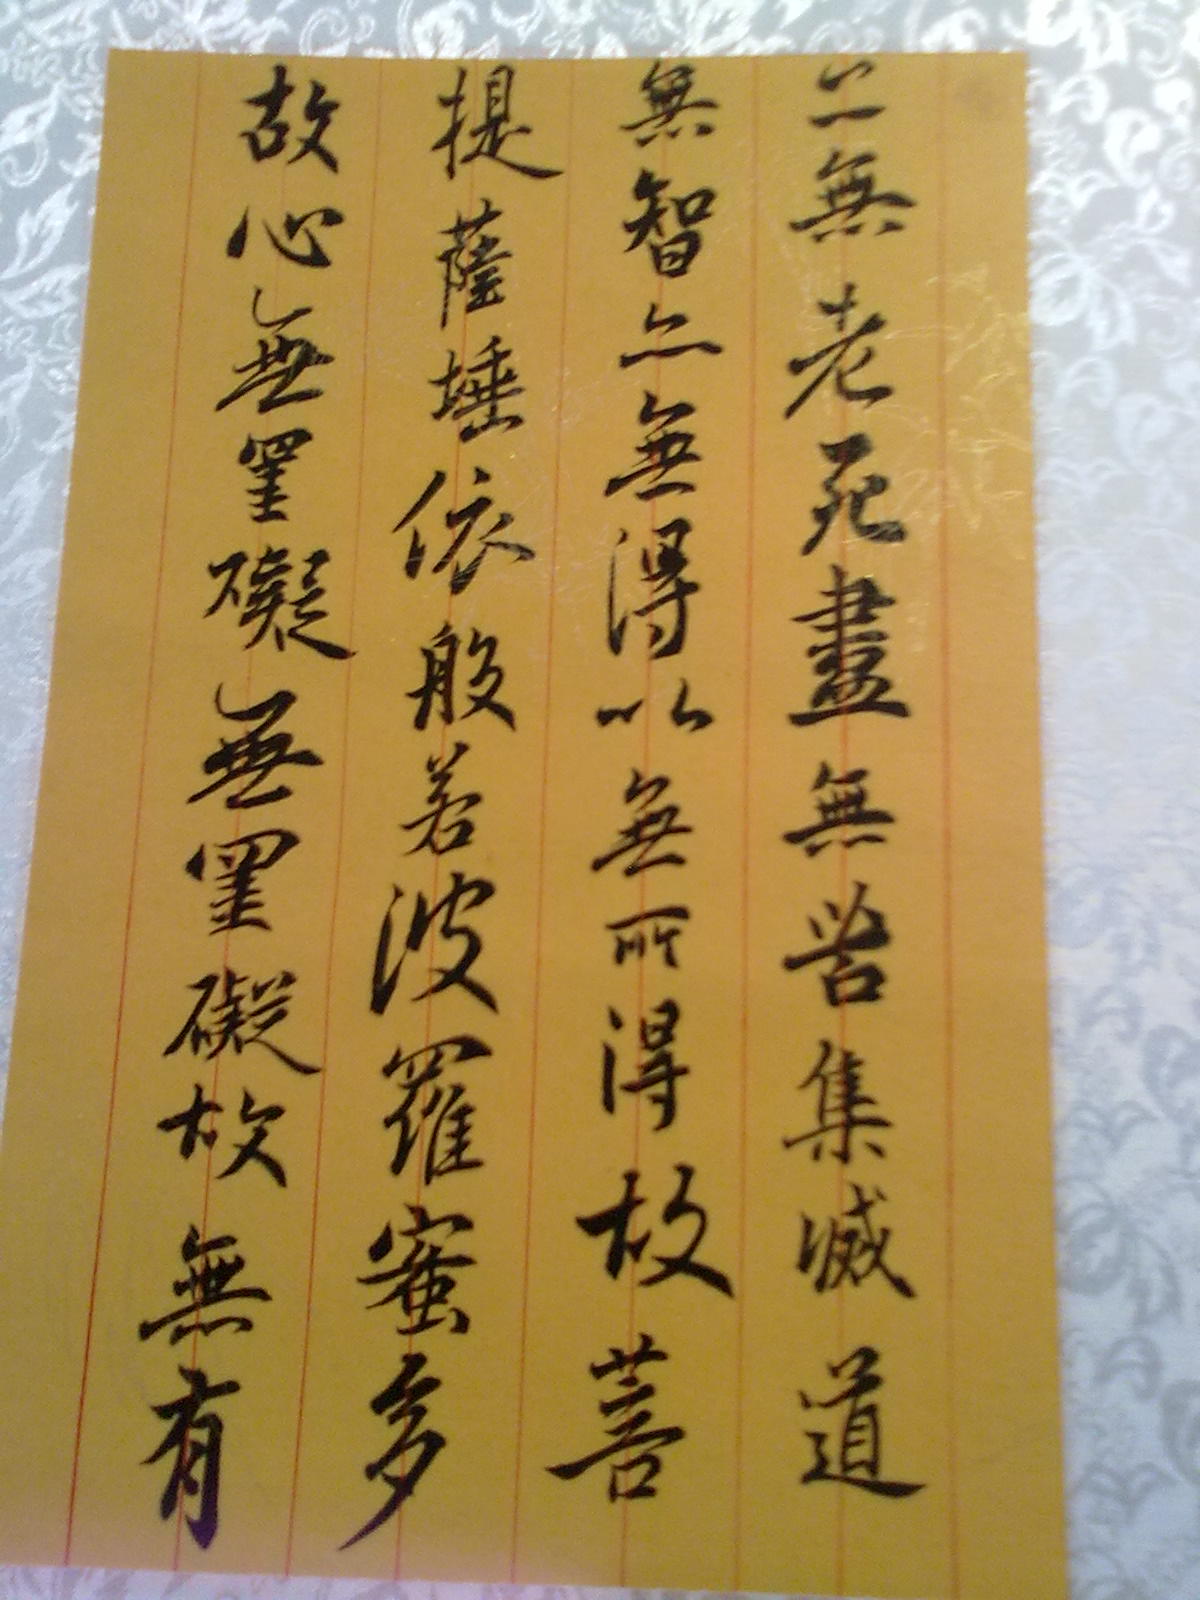 亦無老死盡無苦集滅道
無智亦無得以無所得故菩
提薩埵依般若波羅蜜多
故心無罣礙無罣礙故無有